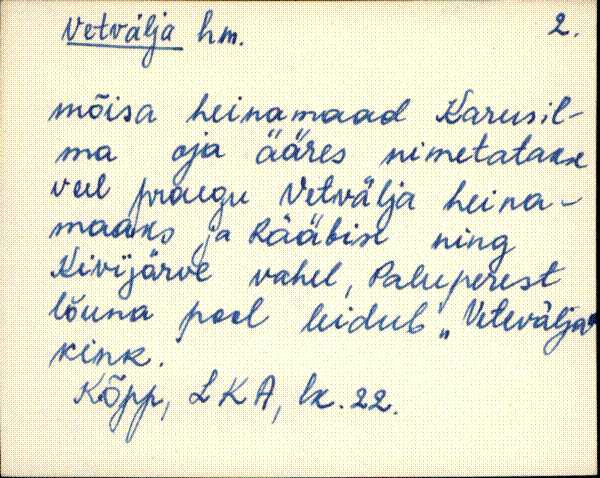 Vetvälja hm. 2.
mõisa heinamaad Karusil-
ma oja ääres nimetatakse
veel praegu Vetvälja heina-
maaks ja Rääbise ning
Kivijärve vahel, Paluperest
lõuna pool leidub "Vetevälja"
kink.
Kõpp, LKA, lk. 22.